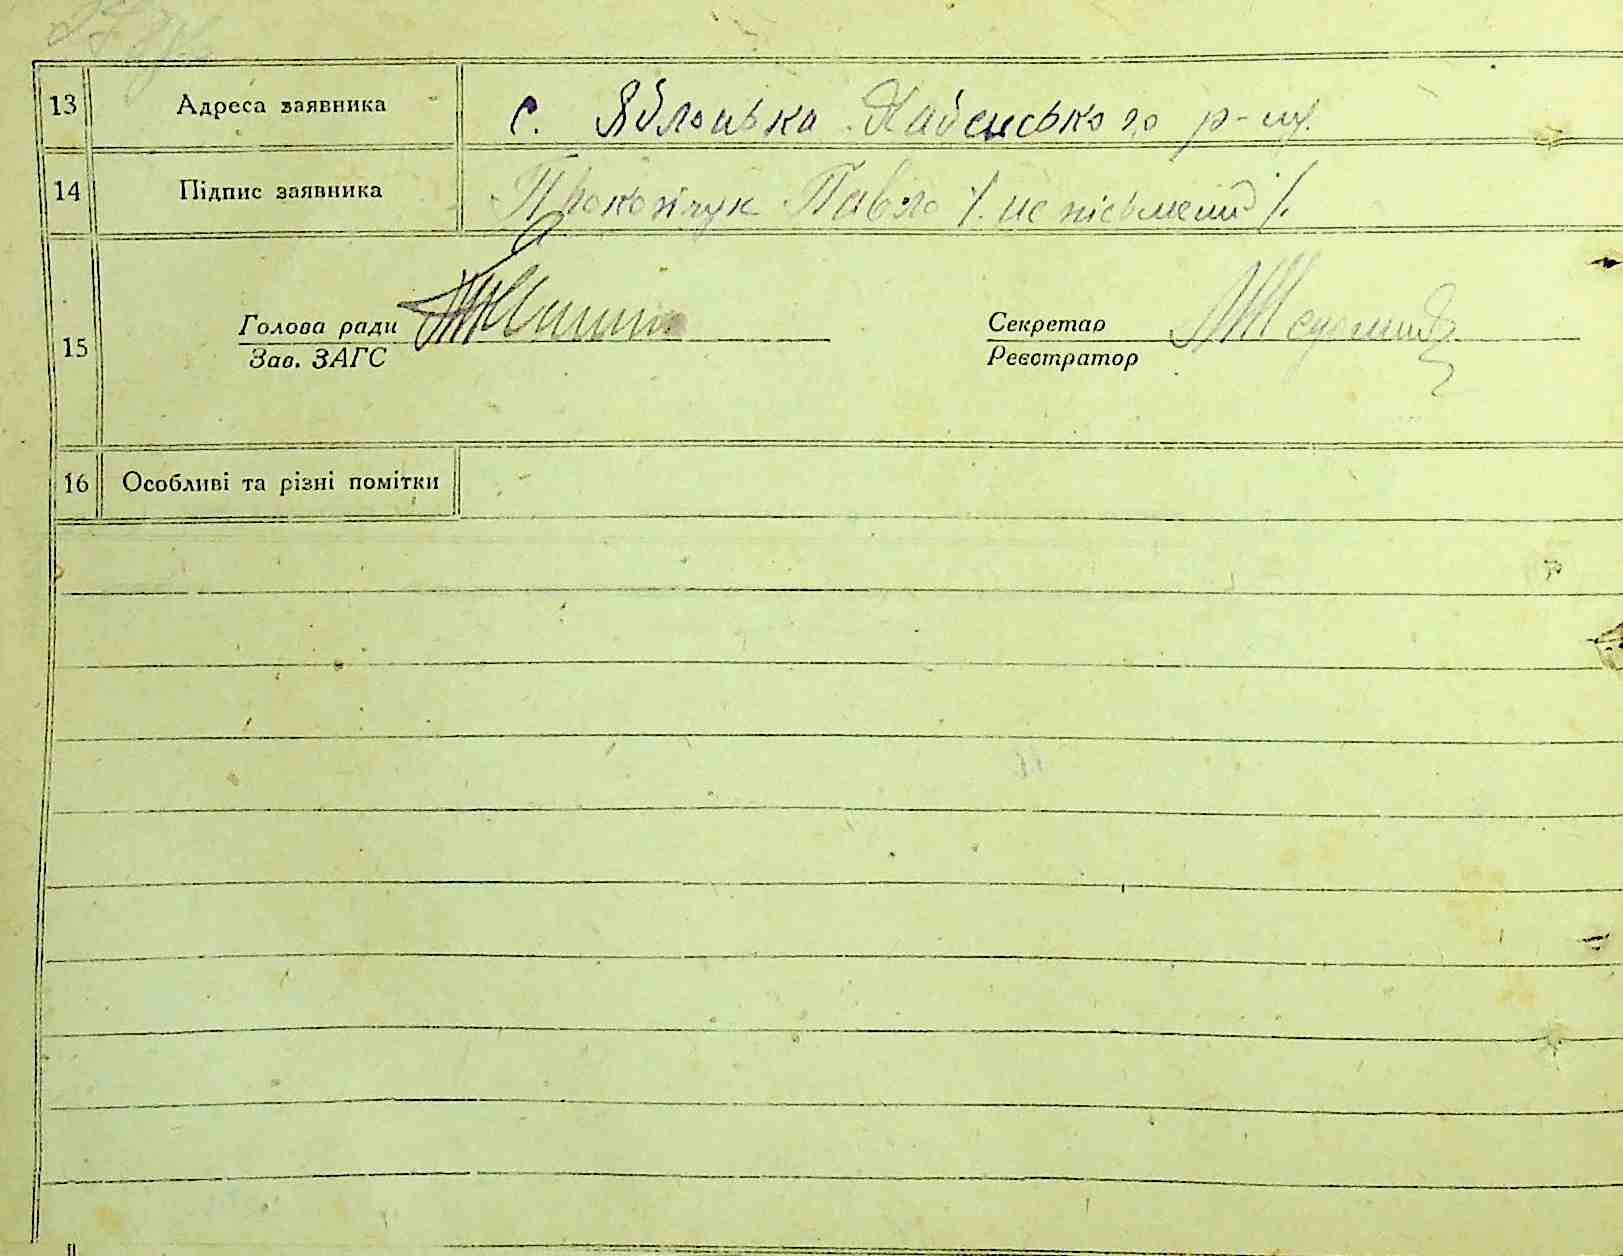 13 Адреса заявника с. Яблонька Хабенського р-ну.
14 Підпис заявника Прокопчук Павло /. не письмений /.
Голова ради Секретар
15
Зав. ЗАГС Реєстратор
16 Особливі та різні помітки